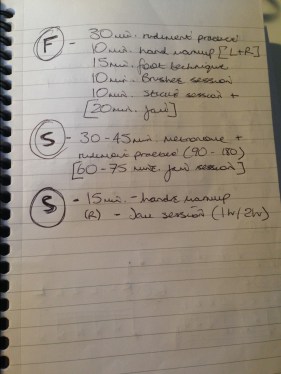 F - 30min. rudiment practice
10min. hand warmup [L+R]
15min. foot technique
10min. Brushes session
10min. session +
[20min. jam]
S - 30-45min. metronome +
rudiment practice (90-180)
[60-75 min. jam session]
S - 15min. - hands warmup
(R) - Jam session (1hr/2hr)